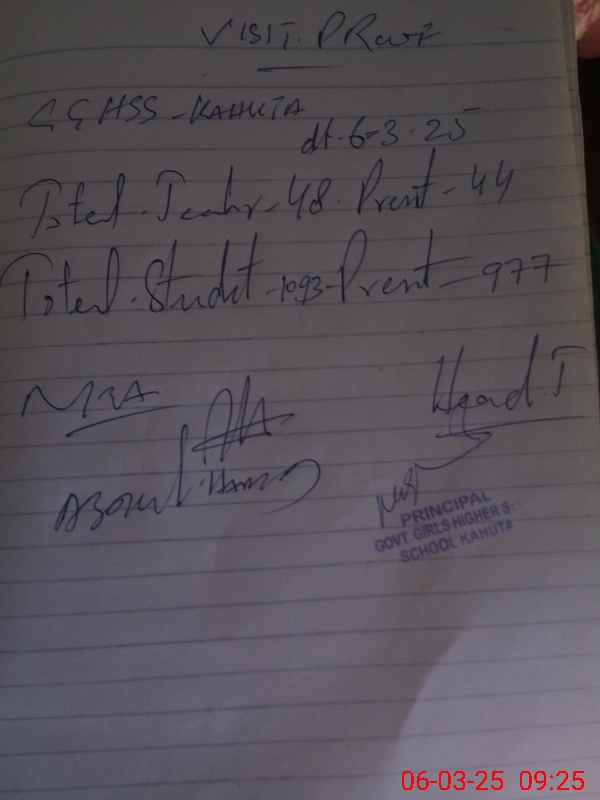 VISIT. PRouf
GGHSS - KAHUTA
dt. 6-3-25
Total. Teachr - 48. Presnt - 44
Total. Studet - 1093 - Presnt - 977
MEA
Head. T
Abdul. Hameed
PRINCIPAL
GOVT GIRLS HIGHER S
SCHOOL KAHUTA
06-03-25 09:25